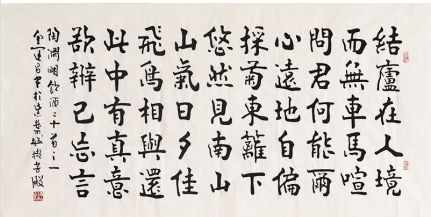 結廬在人境
而無車馬喧
問君何能爾
心遠地自偏
採菊東籬下
悠然見南山
山氣日夕佳
飛鳥相與還
此中有真意
欲辯已忘言
陶淵明飲酒二十首之一